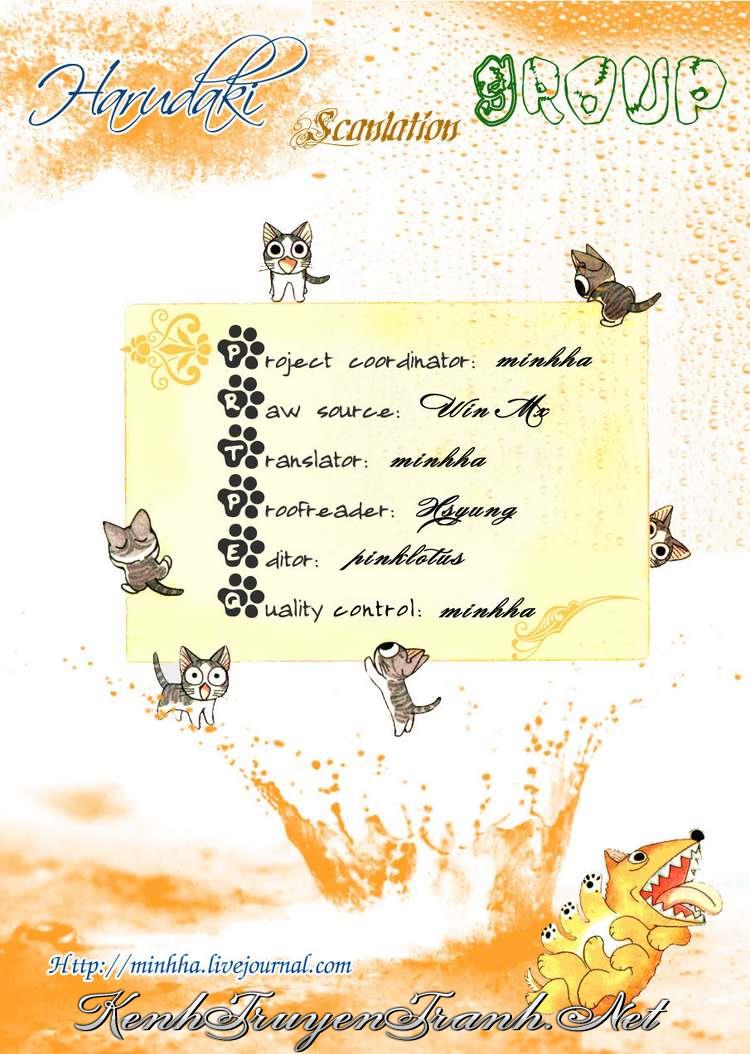 Harudaki
Scanlation
gROUP
Project coordinator: minhha
Raw source: Win Mx
Translator: minhha
Proofreader: Hsyung
Editor: pinklotus
Quality control: minhha
Http://minhha.livejournal.com
KenhTruyenTranh.Net